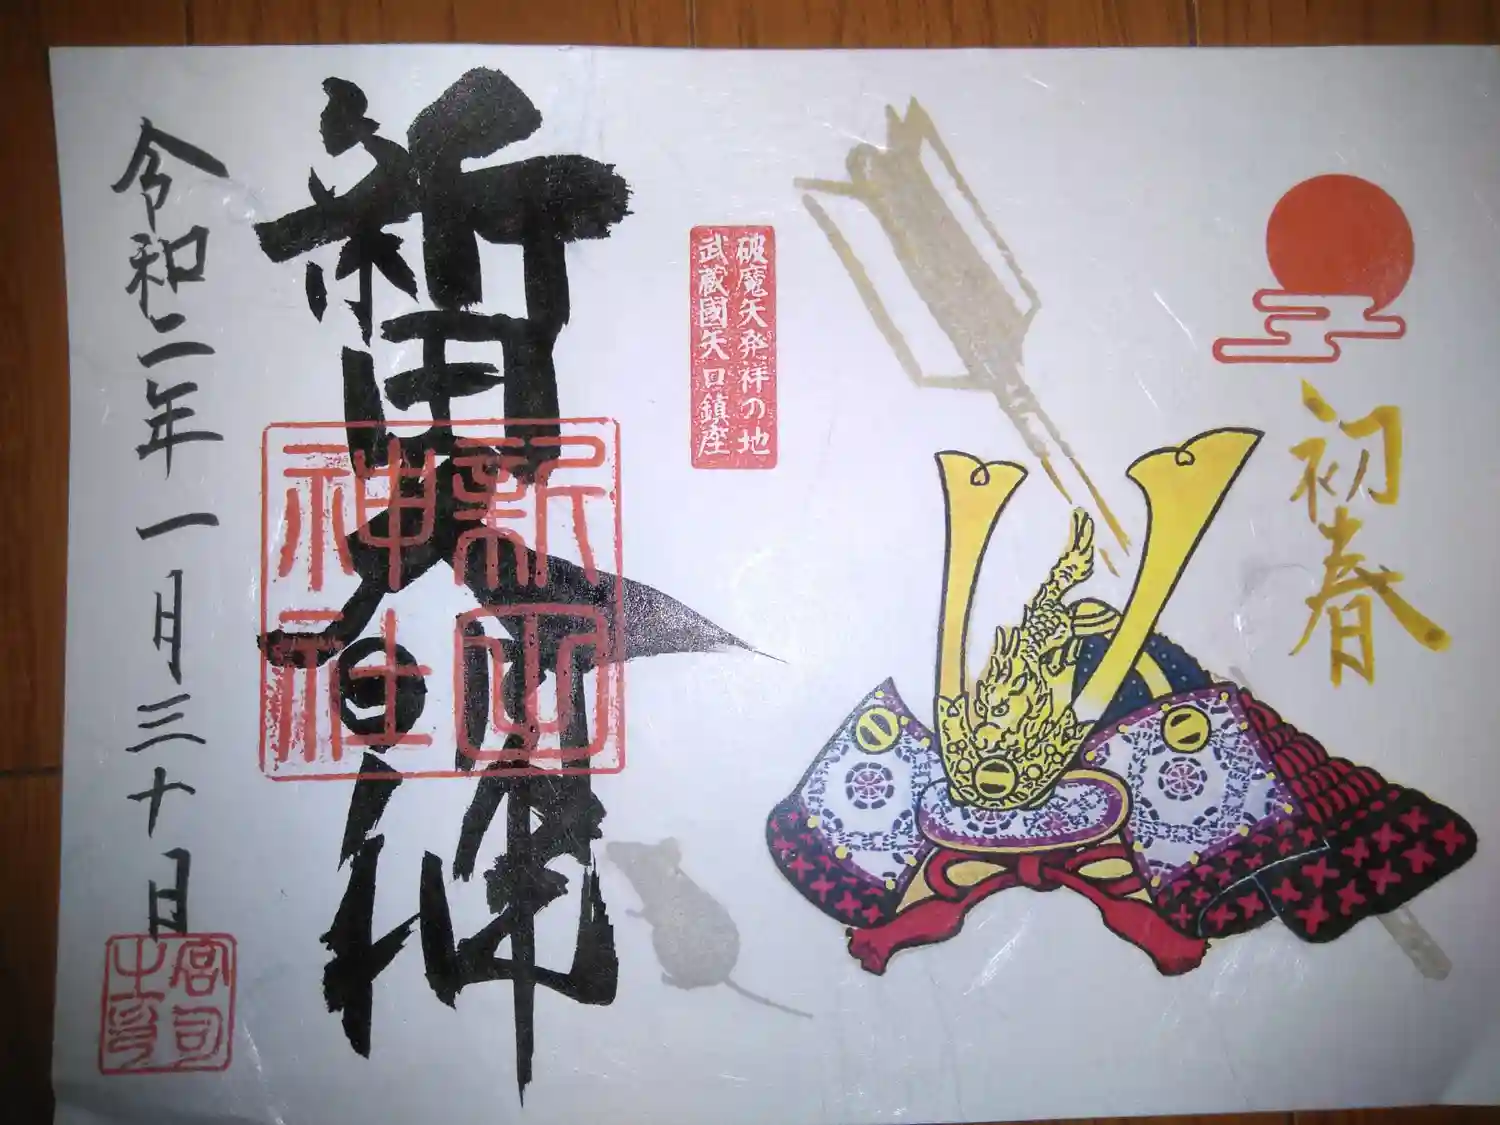 初春
破魔矢発祥の地
武蔵國矢口鎮座
新田大明神
新田
神社
令和二年一月三十日
宮司
之印